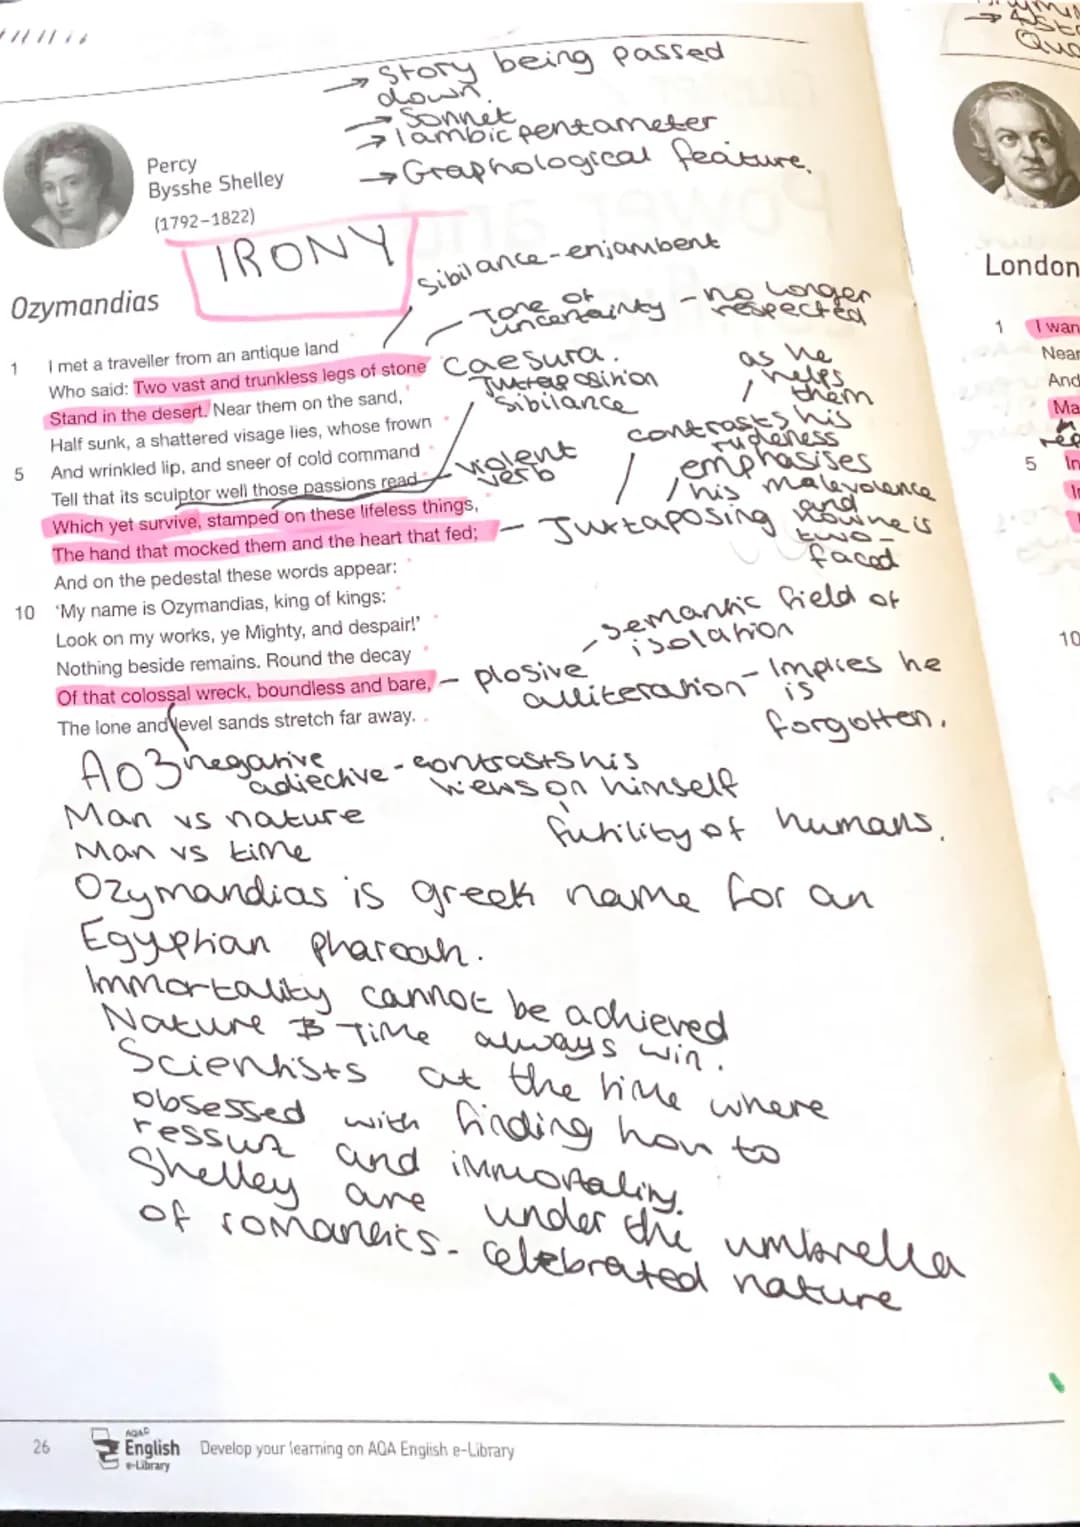 → Story being passed
down.
→ Sonnet
→ Iambic pentameter
→ Graphological feature.
Percy
Bysshe Shelley
(1792–1822)
IRONY
Sibilance - enjambent
Ozymandias
Tone of
uncertainty - no longer
respected
1 I met a traveller from an antique land
Who said: Two vast and trunkless legs of stone
Stand in the desert. Near them on the sand,
Half sunk, a shattered visage lies, whose frown
5 And wrinkled lip, and sneer of cold command
Tell that its sculptor well those passions read
Which yet survive, stamped on these lifeless things,
The hand that mocked them and the heart that fed;
And on the pedestal these words appear:
10 'My name is Ozymandias, king of kings:
Look on my works, ye Mighty, and despair!'
Nothing beside remains. Round the decay
Of that colossal wreck, boundless and bare,
The lone and level sands stretch far away.
Caesura.
Juxtaposition
Sibilance
as he
helps
them
contrasts his
rudeness
violent
verb
emphasises
his malevolence
and
Juxtaposing how he is
two-
faced
semantic field of
isolation
plosive
alliteration - Implies he
is
forgotten.
Ao3 negative
adjective - contrasts his
views on himself
Man vs nature
futility of humans.
Man vs time
Ozymandias is greek name for an
Egyptian pharoah.
Immortality cannot be achieved
Nature & Time always win.
Scientists at the time where
obsessed with finding how to
ressur and immortality.
Shelley are under the umbrella
of romantics - celebrated nature
26
AQA
English
e-Library
Develop your learning on AQA English e-Library
London
1 I wan
Near
And
Ma
rep
5 In
10